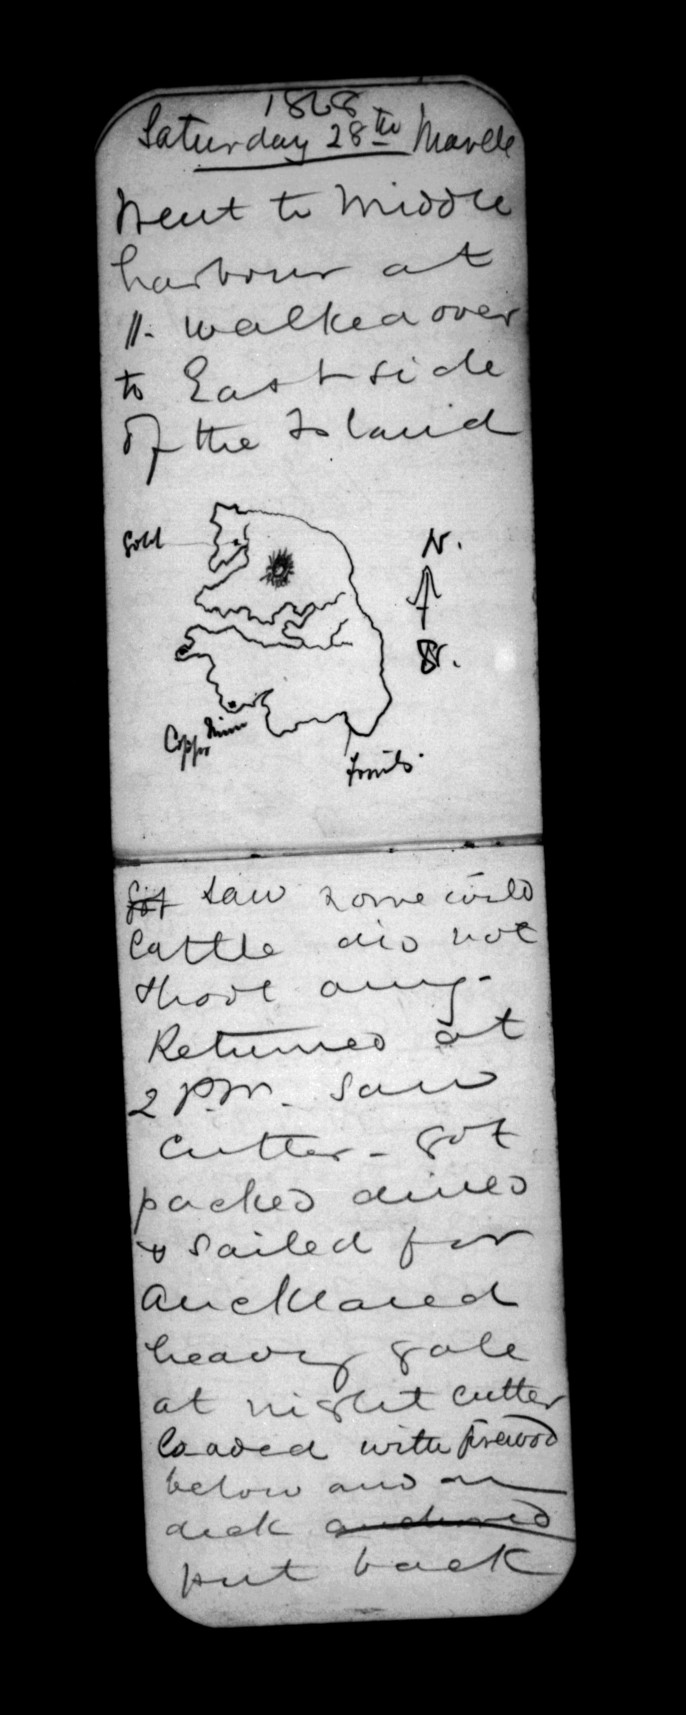 1868
Saturday 28th March
Went to Middle
harbour at
11. walked over
to East side
of the Island
Gold
N.
S.
Copper Mine
Fossils.
Got saw some wild
Cattle did not
shoot any -
Returned at
2 P.M. Saw
Cutter - got
packed dined
& sailed for
Auckland
heavy gale
at night cutter
loaded with firewood
below and on
deck anchored
put back